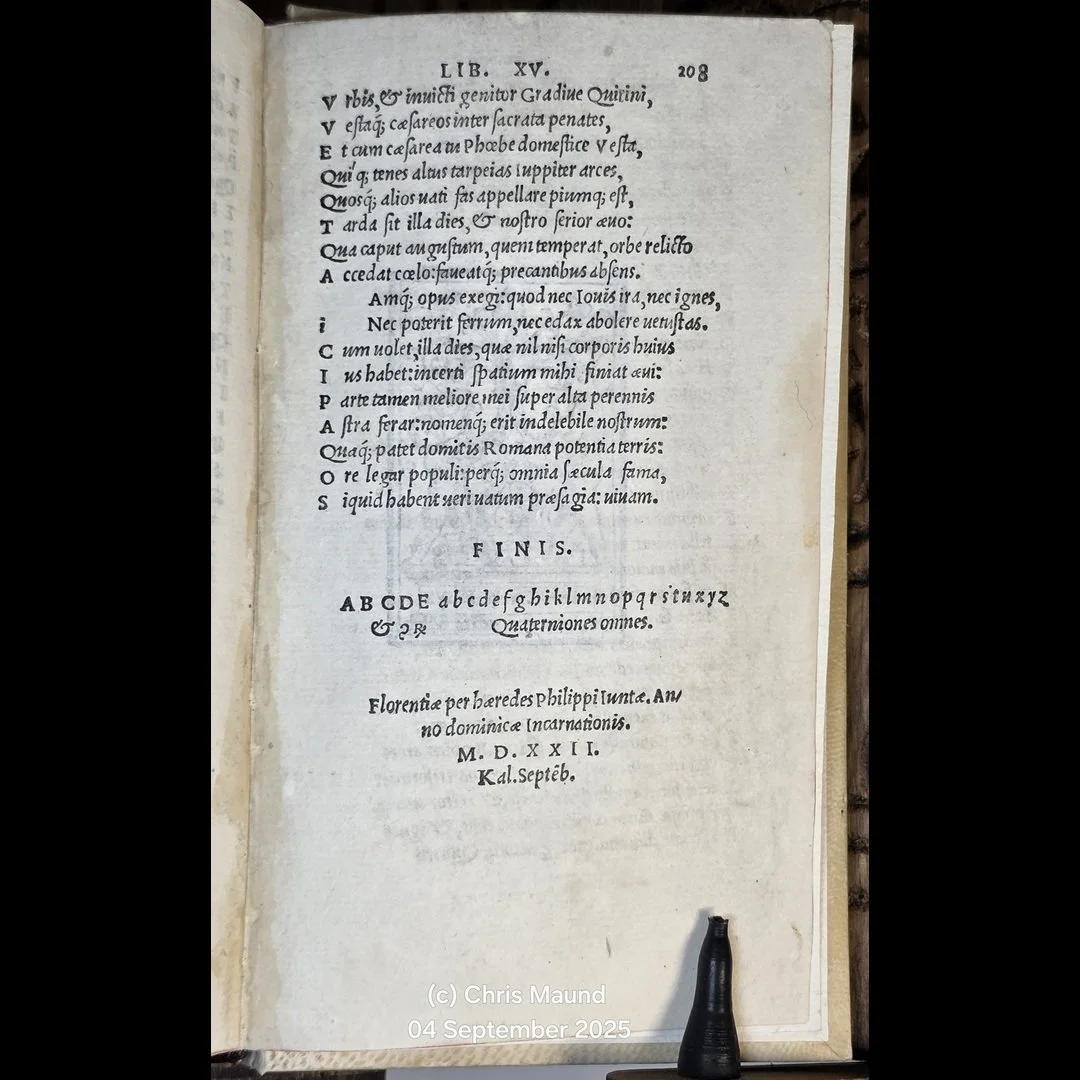 LIB. XV. 208
V rbis, & inuicti genitor Gradiue Quirini,
V estaq; cæsareos inter sacrata penates,
E t cum cæsarea tu Phœbe domestice Vesta,
Qui q; tenes altus tarpeias Iuppiter arces,
Quosq; alios uati fas appellare piumq; est,
T arda sit illa dies, & nostro serior æuo:
Qua caput augustum, quem temperat, orbe relicto
A ccedat cœlo: faueatq; precantibus absens.
Amq; opus exegi: quod nec Iouis ira, nec ignes,
i Nec poterit ferrum, nec edax abolere uetustas.
C um uolet, illa dies, quæ nil nisi corporis huius
I us habet: incerti spatium mihi finiat æui:
P arte tamen meliore mei super alta perennis
A stra ferar: nomenq; erit indelebile nostrum:
Quaq; patet domitis Romana potentia terris:
O re legar populi: perq; omnia sæcula fama,
S iquid habent ueri uatum præsagia: uiuam.
FINIS.
A B C D E a b c d e f g h i k l m n o p q r s t u x y z
& ꝯ ꝶ Quaterniones omnes.
Florentiæ per hæredes Philippi Iuntæ. An/
no dominicæ Incarnationis.
M. D. XXII.
Kal. Septēb.
(c) Chris Maund
04 September 2025